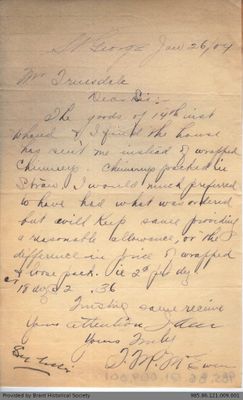 St George Jan 26/04
Mr Truesdale
Dear Sir:-
The goods of 14th inst
& I find the house
has sent me instead of wrapped
Chimneys. Chimneys packed in
Straw I would much preferred
to have had what was ordered
but will keep same providing
a reasonable allowance, or the
difference in price of wrapped
& loose pack. ie 2¢ per dz
18 dz @ 2 .36
Trusting same receive
Yours attention I am
Yours Truly
Provided by Brant Historical Society
985.86.121.009.001